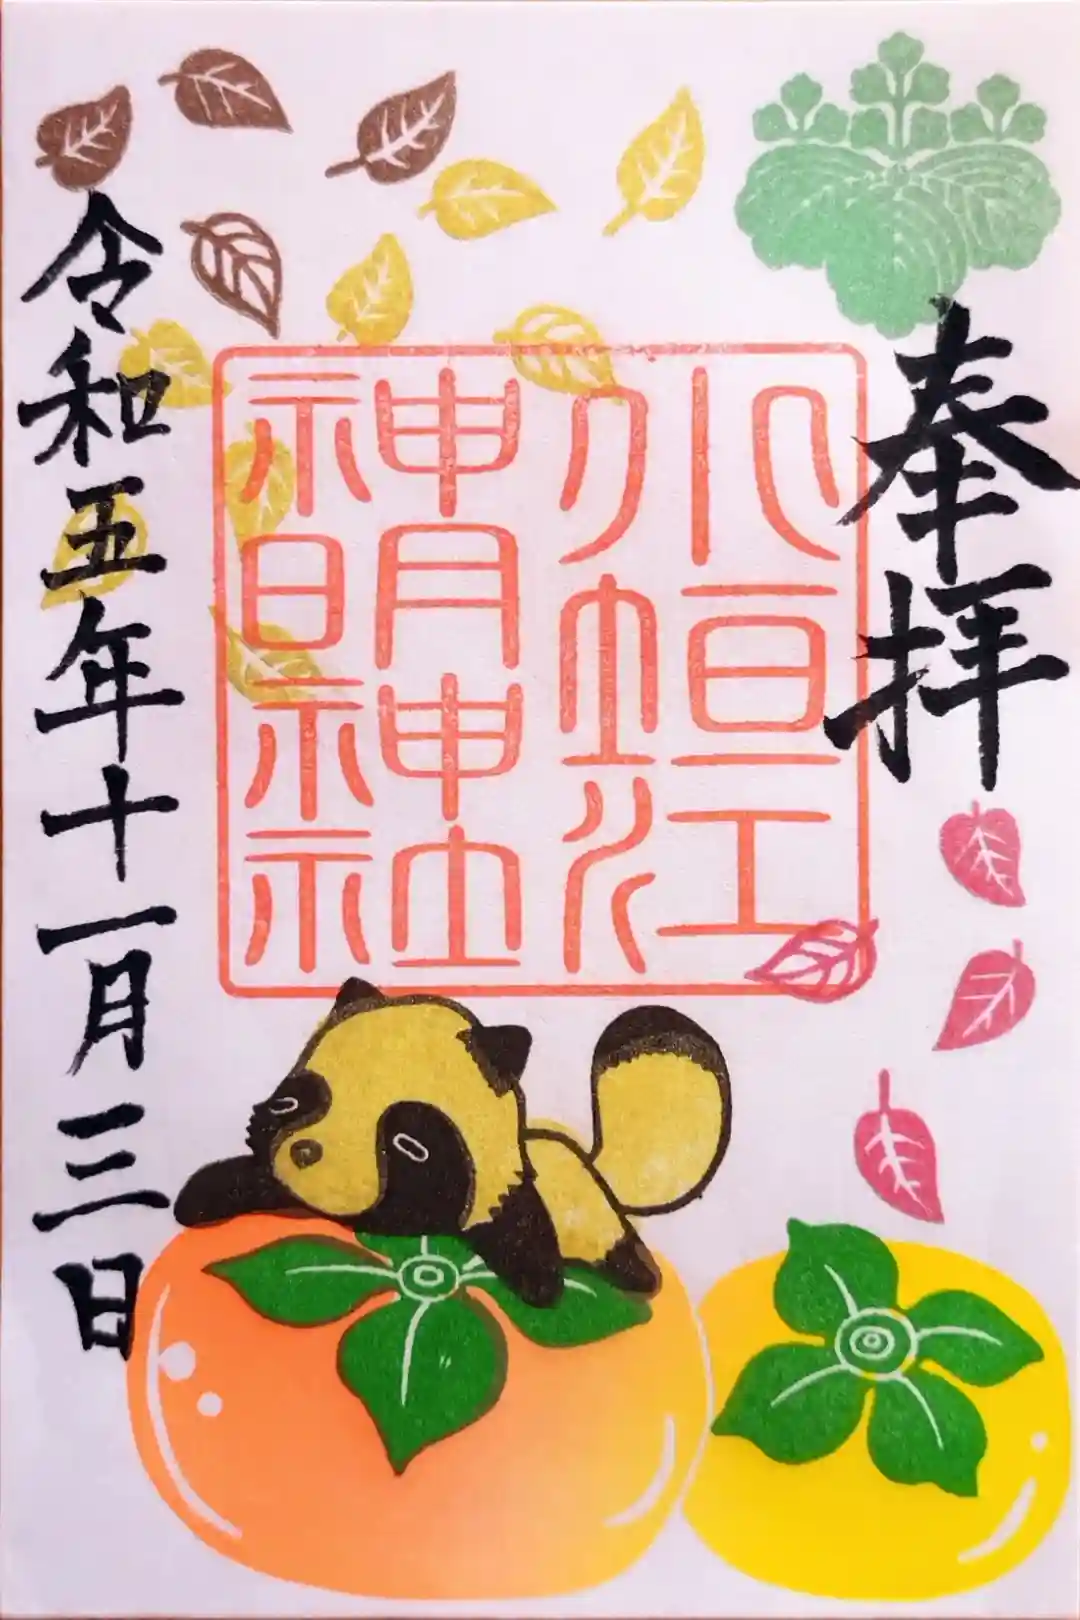 奉拝
小垣江
神明神社
令和五年十一月三日